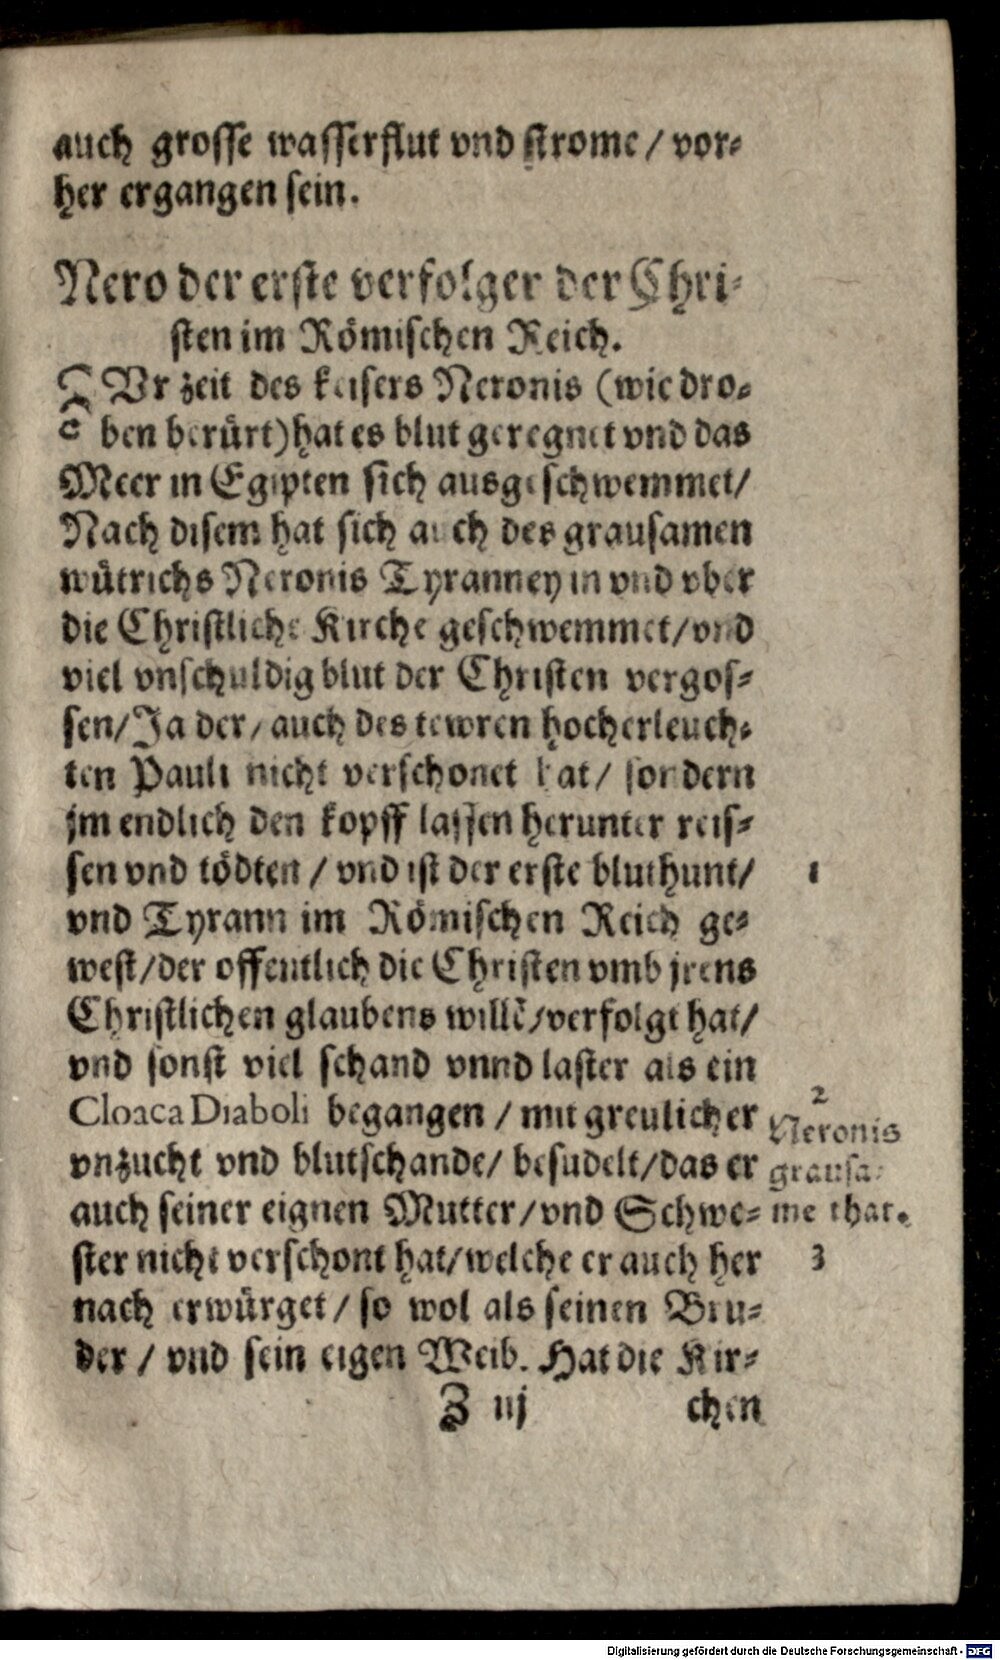 auch grosse wasserflut vnd strome / vor⸗
her ergangen sein.
Nero der erste verfolger der Chri⸗
sten im Römischen Reich.
ZVr zeit des keisers Neronis (wie dro⸗
ben berürt) hat es blut geregnet vnd das
Meer in Egipten sich ausgeschwemmet/
Nach disem hat sich auch des grausamen
wütrichs Neronis Tyranney in vnd vber
die Christliche Kirche geschwemmet/vnd
viel vnschuldig blut der Christen vergos⸗
sen/Ja der/auch des tewren hocherleuch⸗
ten Pauli nicht verschonet hat/ sondern
jm endlich den kopff lassen herunter reis⸗
sen vnd tödten / vnd ist der erste bluthunt/
1
vnd Tyrann im Römischen Reich ge⸗
west/der offentlich die Christen vmb jrens
Christlichen glaubens willē/verfolgt hat/
vnd sonst viel schand vnnd laster als ein
Cloaca Diaboli begangen / mit greulicher
vnzucht vnd blutschande/ besudelt/das er
auch seiner eignen Mutter/vnd Schwe⸗
ster nicht verschont hat/welche er auch her
nach erwürget / so wol als seinen Bru⸗
der / vnd sein eigen Weib. Hat die Kir⸗
2
Neronis
grausa⸗
me that.
3
Z iij
chen
Digitalisierung gefördert durch die Deutsche Forschungsgemeinschaft - DFG